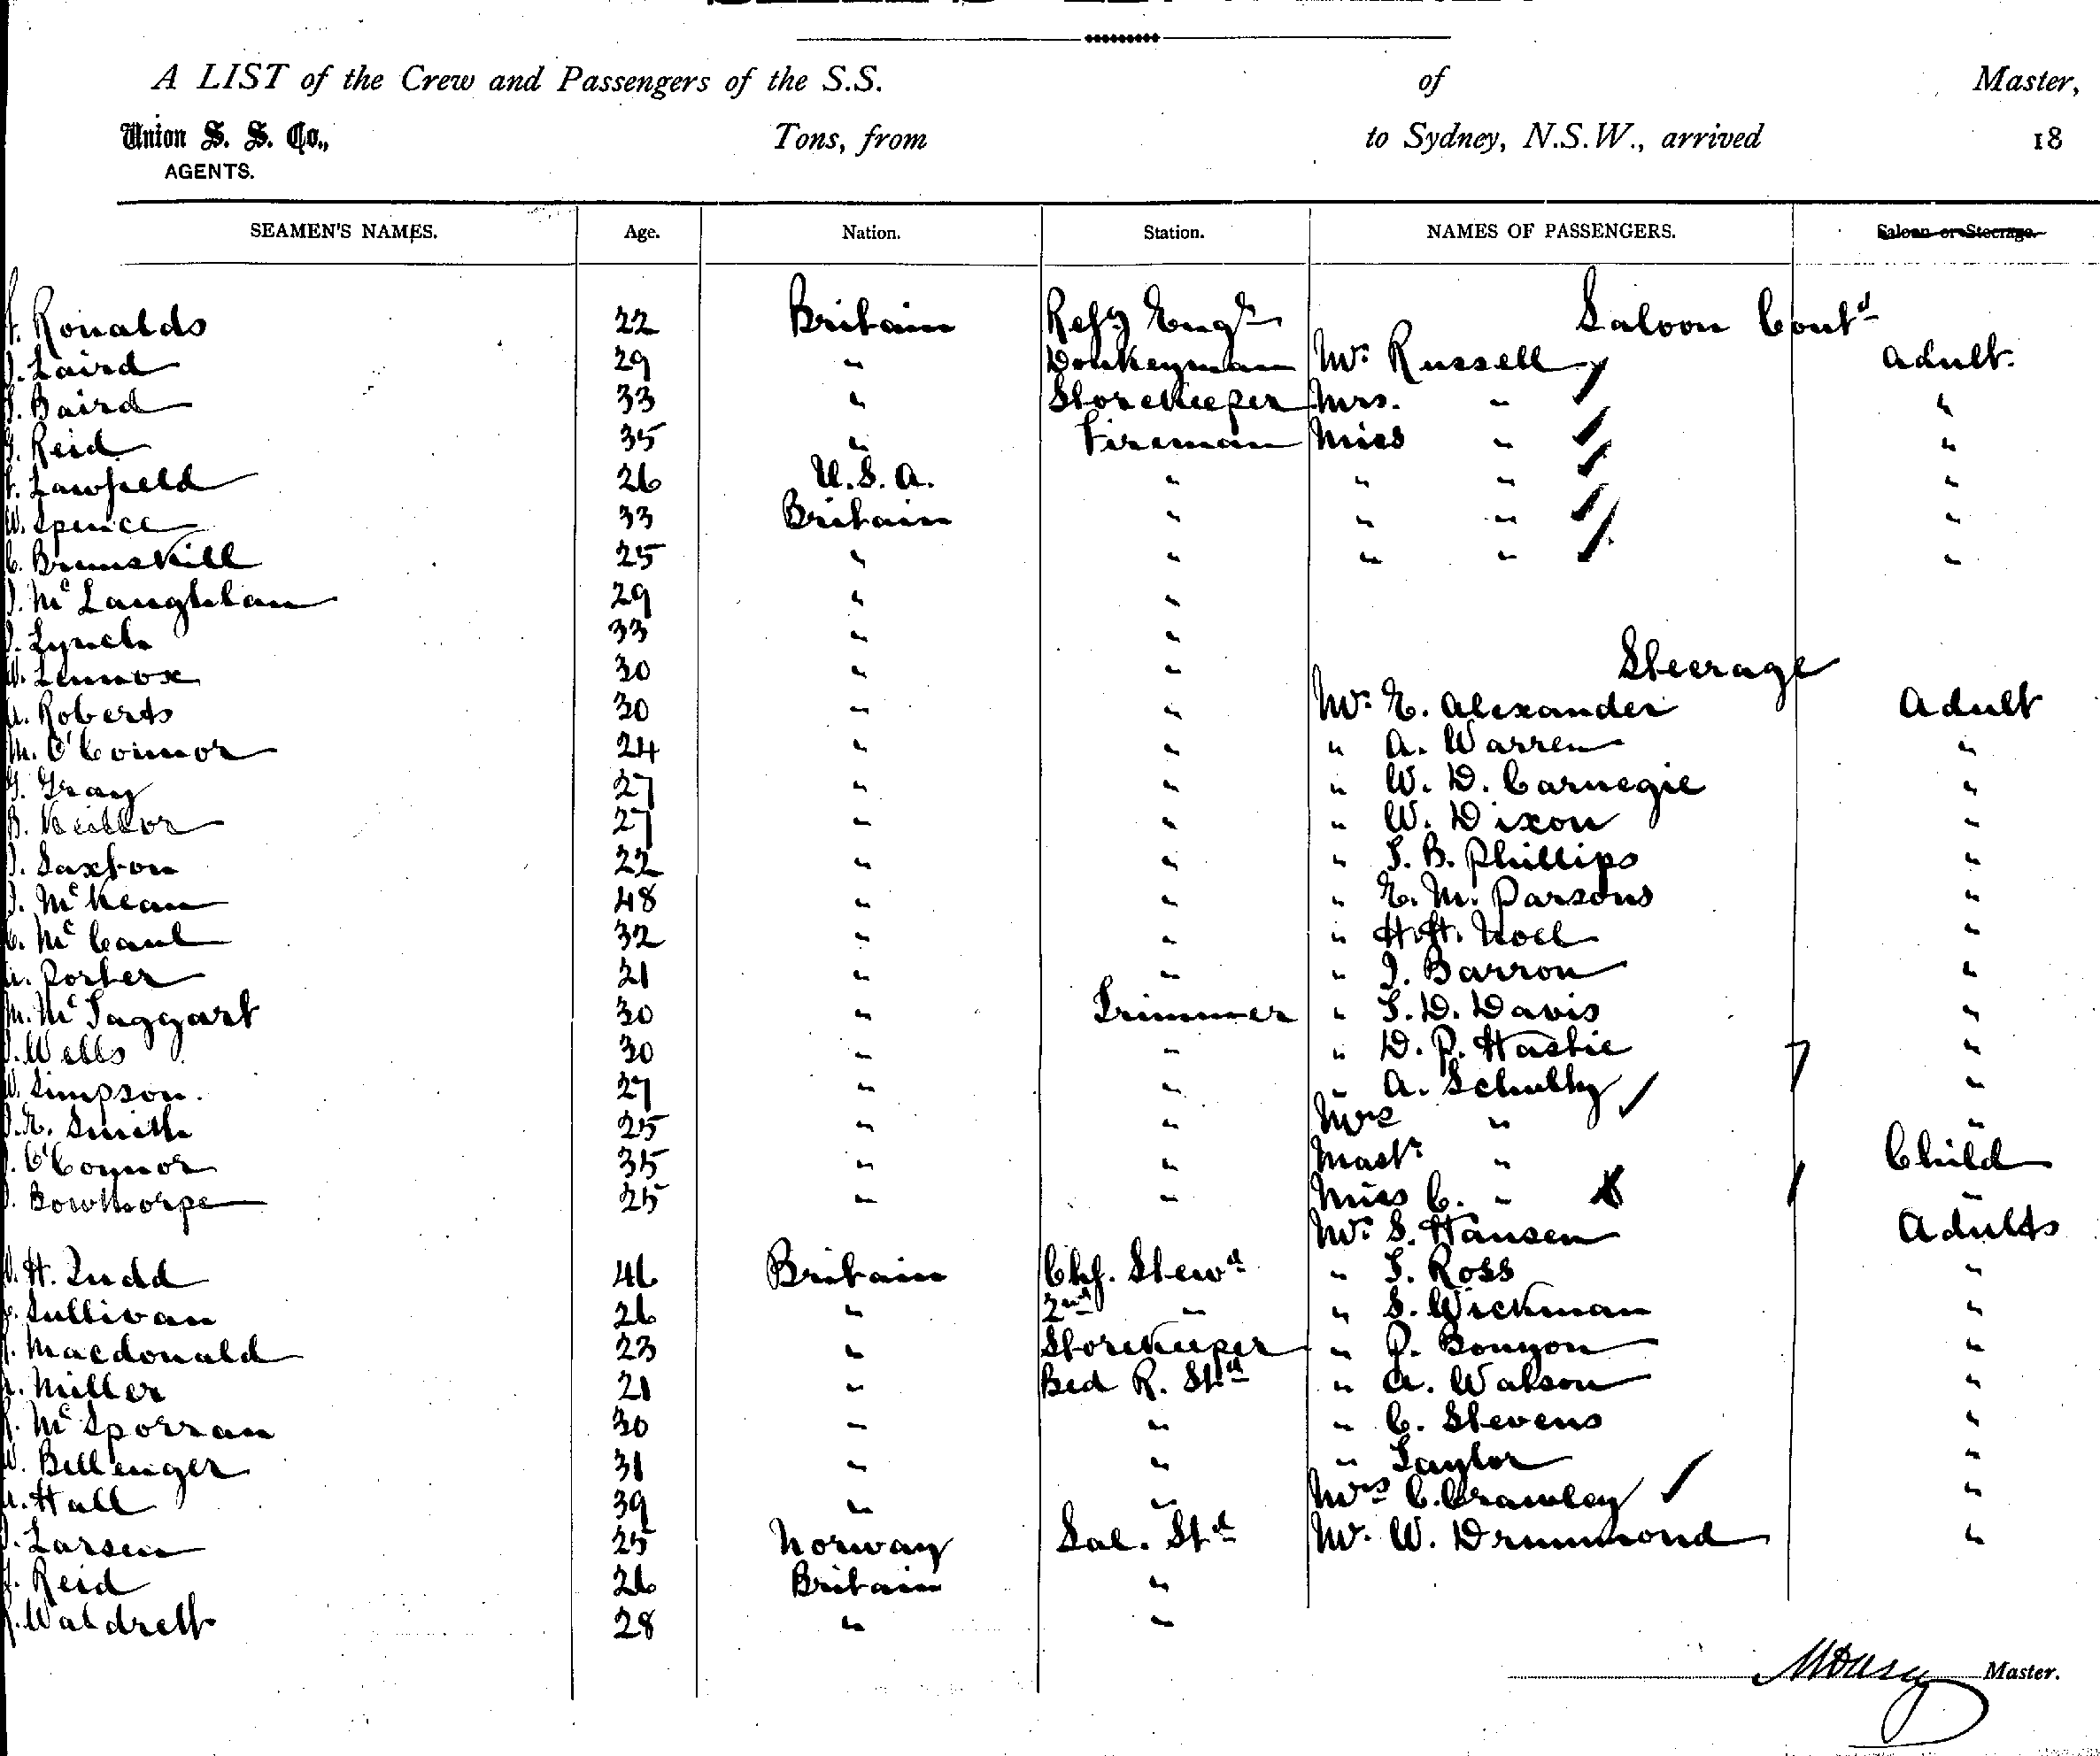 A LIST of the Crew and Passengers of the S.S. of Master,
Union S. S. Co., Tons, from to Sydney, N.S.W., arrived 18
AGENTS.
SEAMEN'S NAMES. Age. Nation. Station. NAMES OF PASSENGERS. Saloon or Steerage.
Ronalds 22 Britain Refg Engr Saloon Contd
Laird 29 " Donkeyman Mr. Russell Adult.
Baird 33 " Storekeeper Mrs. " "
Reid 35 " Fireman Miss " "
Lawfield 26 U.S.A. " " " "
W. Spence 33 Britain " " " "
C. Brunskill 25 " " " " "
McLaughlan 29 " "
Lynch 33 " "
Lennox 30 " " Steerage
A. Roberts 30 " " Mr. E. Alexander Adult
M. O'Connor 24 " " " A. Warren "
G. Gray 27 " " " W. D. Carnegie "
B. Keillor 27 " " " W. Dixon "
Saxton 22 " " " T. B. Phillips "
McKean 48 " " " E. M. Parsons "
C. McCaul 32 " " " H. H. Noll "
A. Porter 21 " " " J. Barron "
M. McTaggart 30 " Trimmer " T. D. Davis "
Wells 30 " " " D. P. Hastie "
Simpson. 27 " " " A. Schultz "
E. Smith 25 " " Mrs " "
O'Connor 35 " " Mastr " Child
Bowthorpe 25 " " Miss C. " "
Mr. S. Hansen Adults
H. Judd 46 Britain Chf. Stewd " T. Ross "
Sullivan 26 " 2nd " " S. Wickman "
Macdonald 23 " Storekeeper " P. Bonyon "
Miller 21 " Bed R. Std " A. Watson "
McSporran 30 " " " C. Stevens "
W. Bellenger 31 " " " Taylor "
A. Hall 39 " " Mrs C. Crawley "
Larsen 25 Norway Sal. Std Mr. W. Drummond "
Reid 26 Britain "
Waldrett 28 " "
Master.